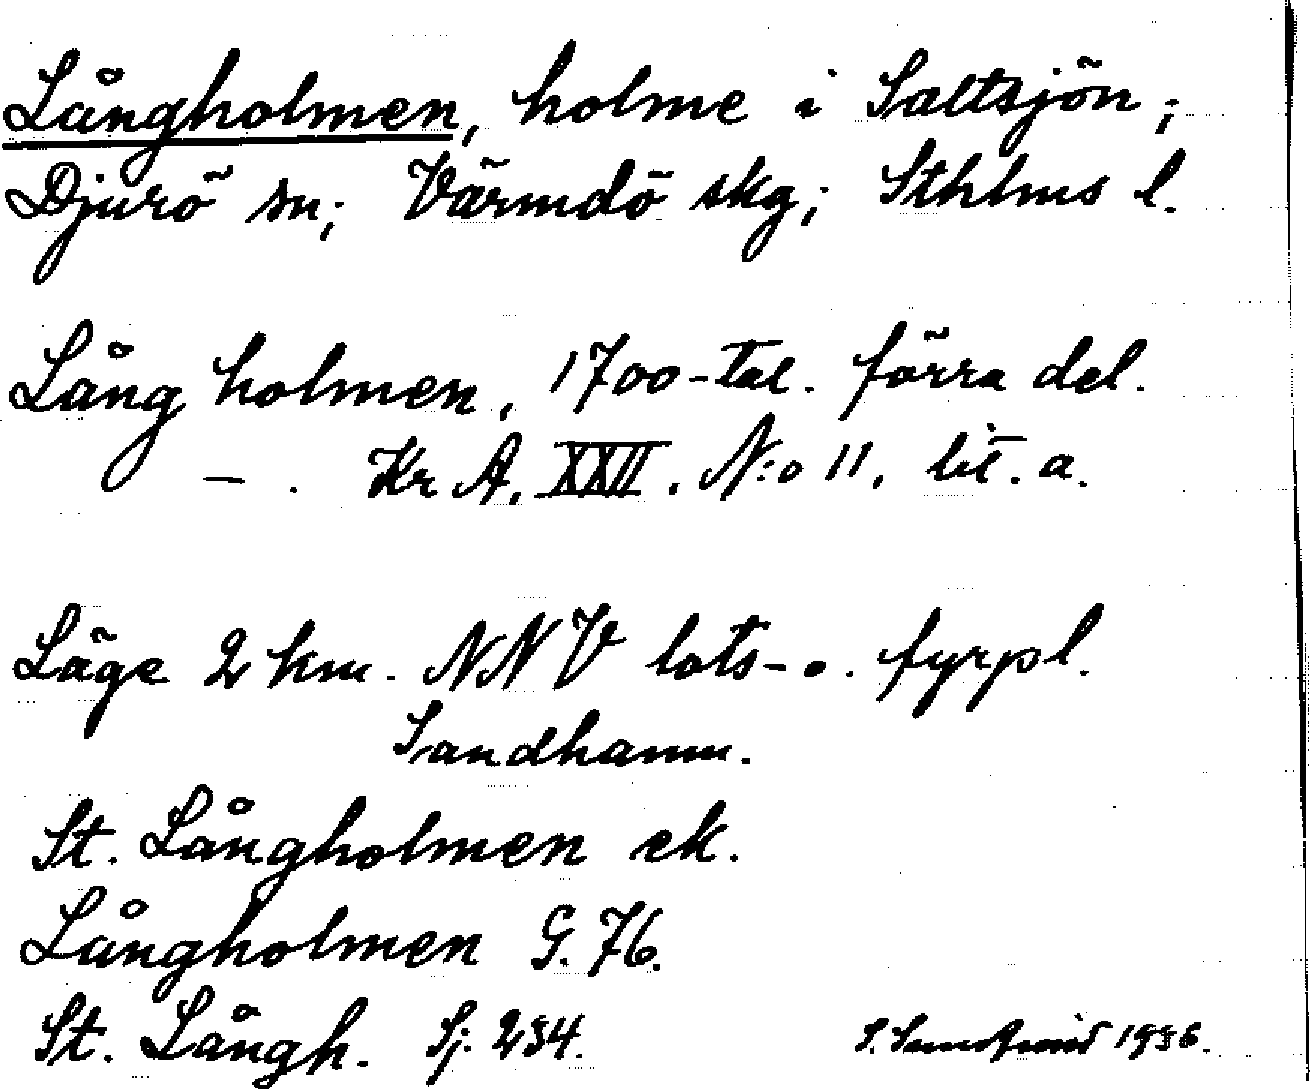 Långholmen, holme i Saltsjön;
Djurö sn; Värmdö skg; Sthlms l.
Lång holmen, 1700-tal. förra del.
— . Kr A. XXII. N:o 11, lit. a.
Läge 2 km. NNV lots- o. fyrpl.
Sandhamn.
St. Långholmen ek.
Långholmen G. 76.
St. Långh. Sj. 234.
S. 1936.